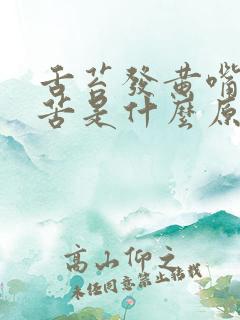 舌苔發黄嘴
苦是什麽原
高山仰之
未经同意禁止转载